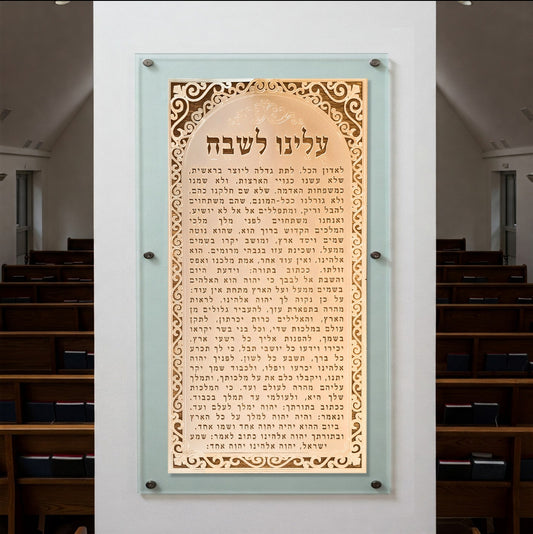 עלינו לשבח
לאדון הכל, לתת גדלה ליוצר בראשית,
שלא עשנו כגויי הארצות, ולא שמנו
כמשפחות האדמה, שלא שם חלקנו כהם,
ולא גורלנו ככל-המונם, שהם משתחוים
להבל וריק, ומתפללים אל אל לא יושיע,
ואנחנו משתחוים לפני מלך מלכי
המלכים הקדוש ברוך הוא, שהוא נוטה
שמים ויסד ארץ, ומושב יקרו בשמים
ממעל, ושכינת עזו בגבהי מרומים, הוא
אלהינו, ואין עוד אחר, אמת מלכנו ואפס
זולתו, ככתוב בתורה: וידעת היום
והשבת אל לבבך כי יהוה הוא האלהים
בשמים ממעל ועל הארץ מתחת אין עוד:
על כן נקוה לך יהוה אלהינו, לראות
מהרה בתפארת עזך, להעביר גלולים מן
הארץ, והאלילים כרות יכרתון, לתקן
עולם במלכות שדי, וכל בני בשר יקראו
בשמך, להפנות אליך כל רשעי ארץ,
יכירו וידעו כל יושבי תבל, כי לך תכרע
כל ברך, תשבע כל לשון, לפניך יהוה
אלהינו יכרעו ויפלו, ולכבוד שמך יקר
יתנו, ויקבלו כלם את על מלכותך, ותמלך
עליהם מהרה לעולם ועד, כי המלכות
שלך היא, ולעולמי עד תמלך בכבוד,
ככתוב בתורתך: יהוה ימלך לעלם ועד.
ונאמר: והיה יהוה למלך על כל הארץ
ביום ההוא יהיה יהוה אחד ושמו אחד.
ובתורתך יהוה אלהינו כתוב לאמר: שמע
ישראל, יהוה אלהינו יהוה אחד: